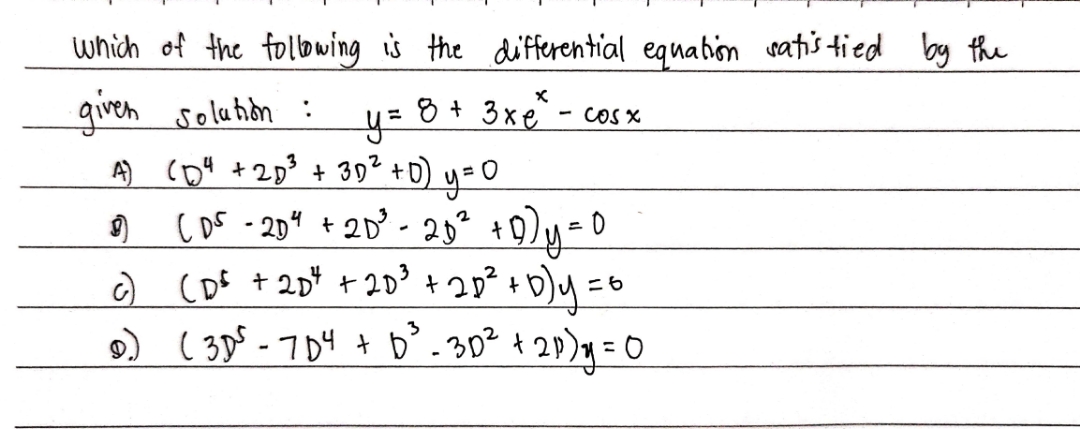 which of the following is the differential equation satisfied by the
given solution : y = 8 + 3xeˣ - cosx
A) (D⁴ + 2D³ + 3D² + D) y = 0
B) (D⁵ - 2D⁴ + 2D³ - 2D² + D)y = 0
C) (D⁵ + 2D⁴ + 2D³ + 2D² + D)y = 0
D.) (3D⁵ - 7D⁴ + D³ - 3D² + 2D)y = 0